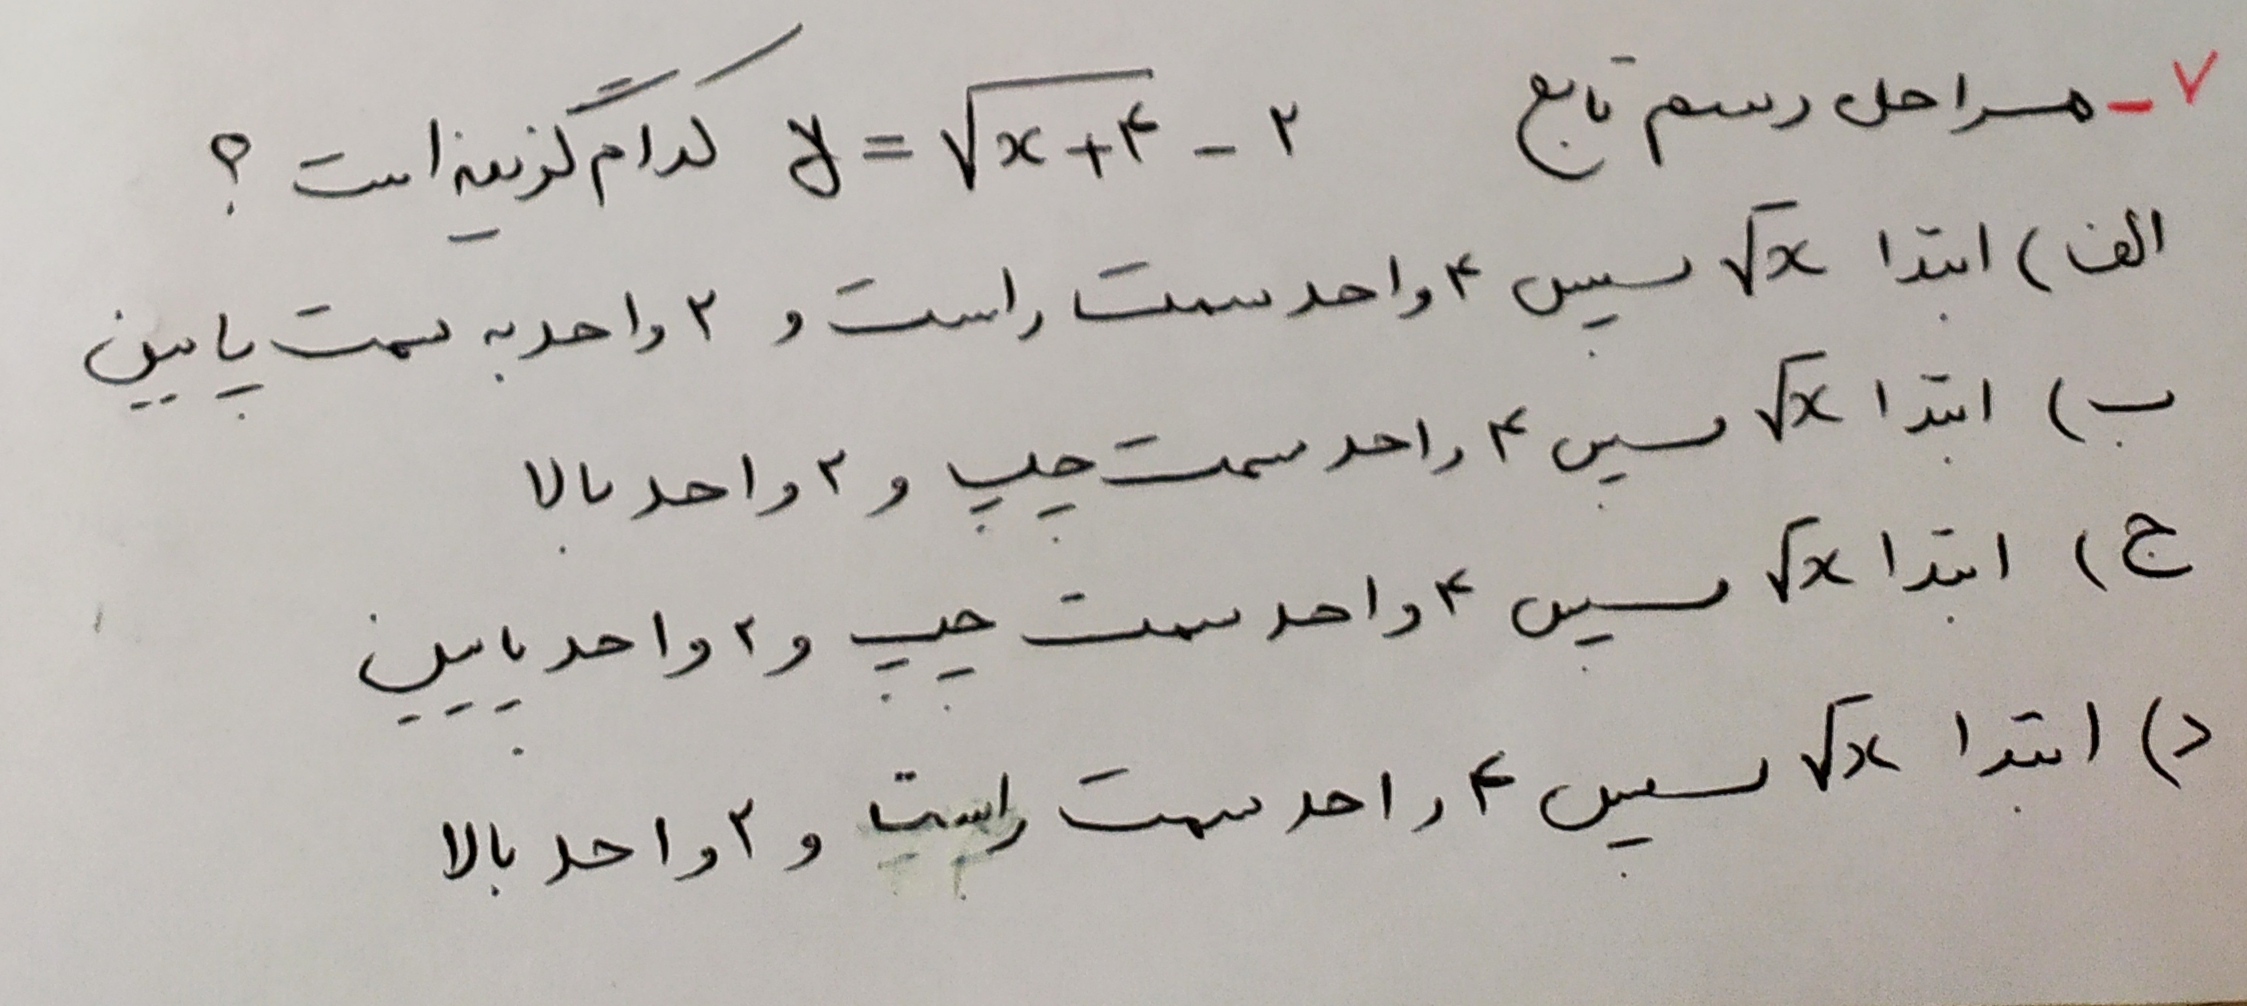 ۷- مراحل رسم تابع y = √x+۴ - ۲ کدام گزینه است ؟
الف) ابتدا √x سپس ۴ واحد سمت راست و ۲ واحد به سمت پایین
ب) ابتدا √x سپس ۴ واحد سمت چپ و ۲ واحد بالا
ج) ابتدا √x سپس ۴ واحد سمت چپ و ۲ واحد پایین
د) ابتدا √x سپس ۴ واحد سمت راست و ۲ واحد بالا